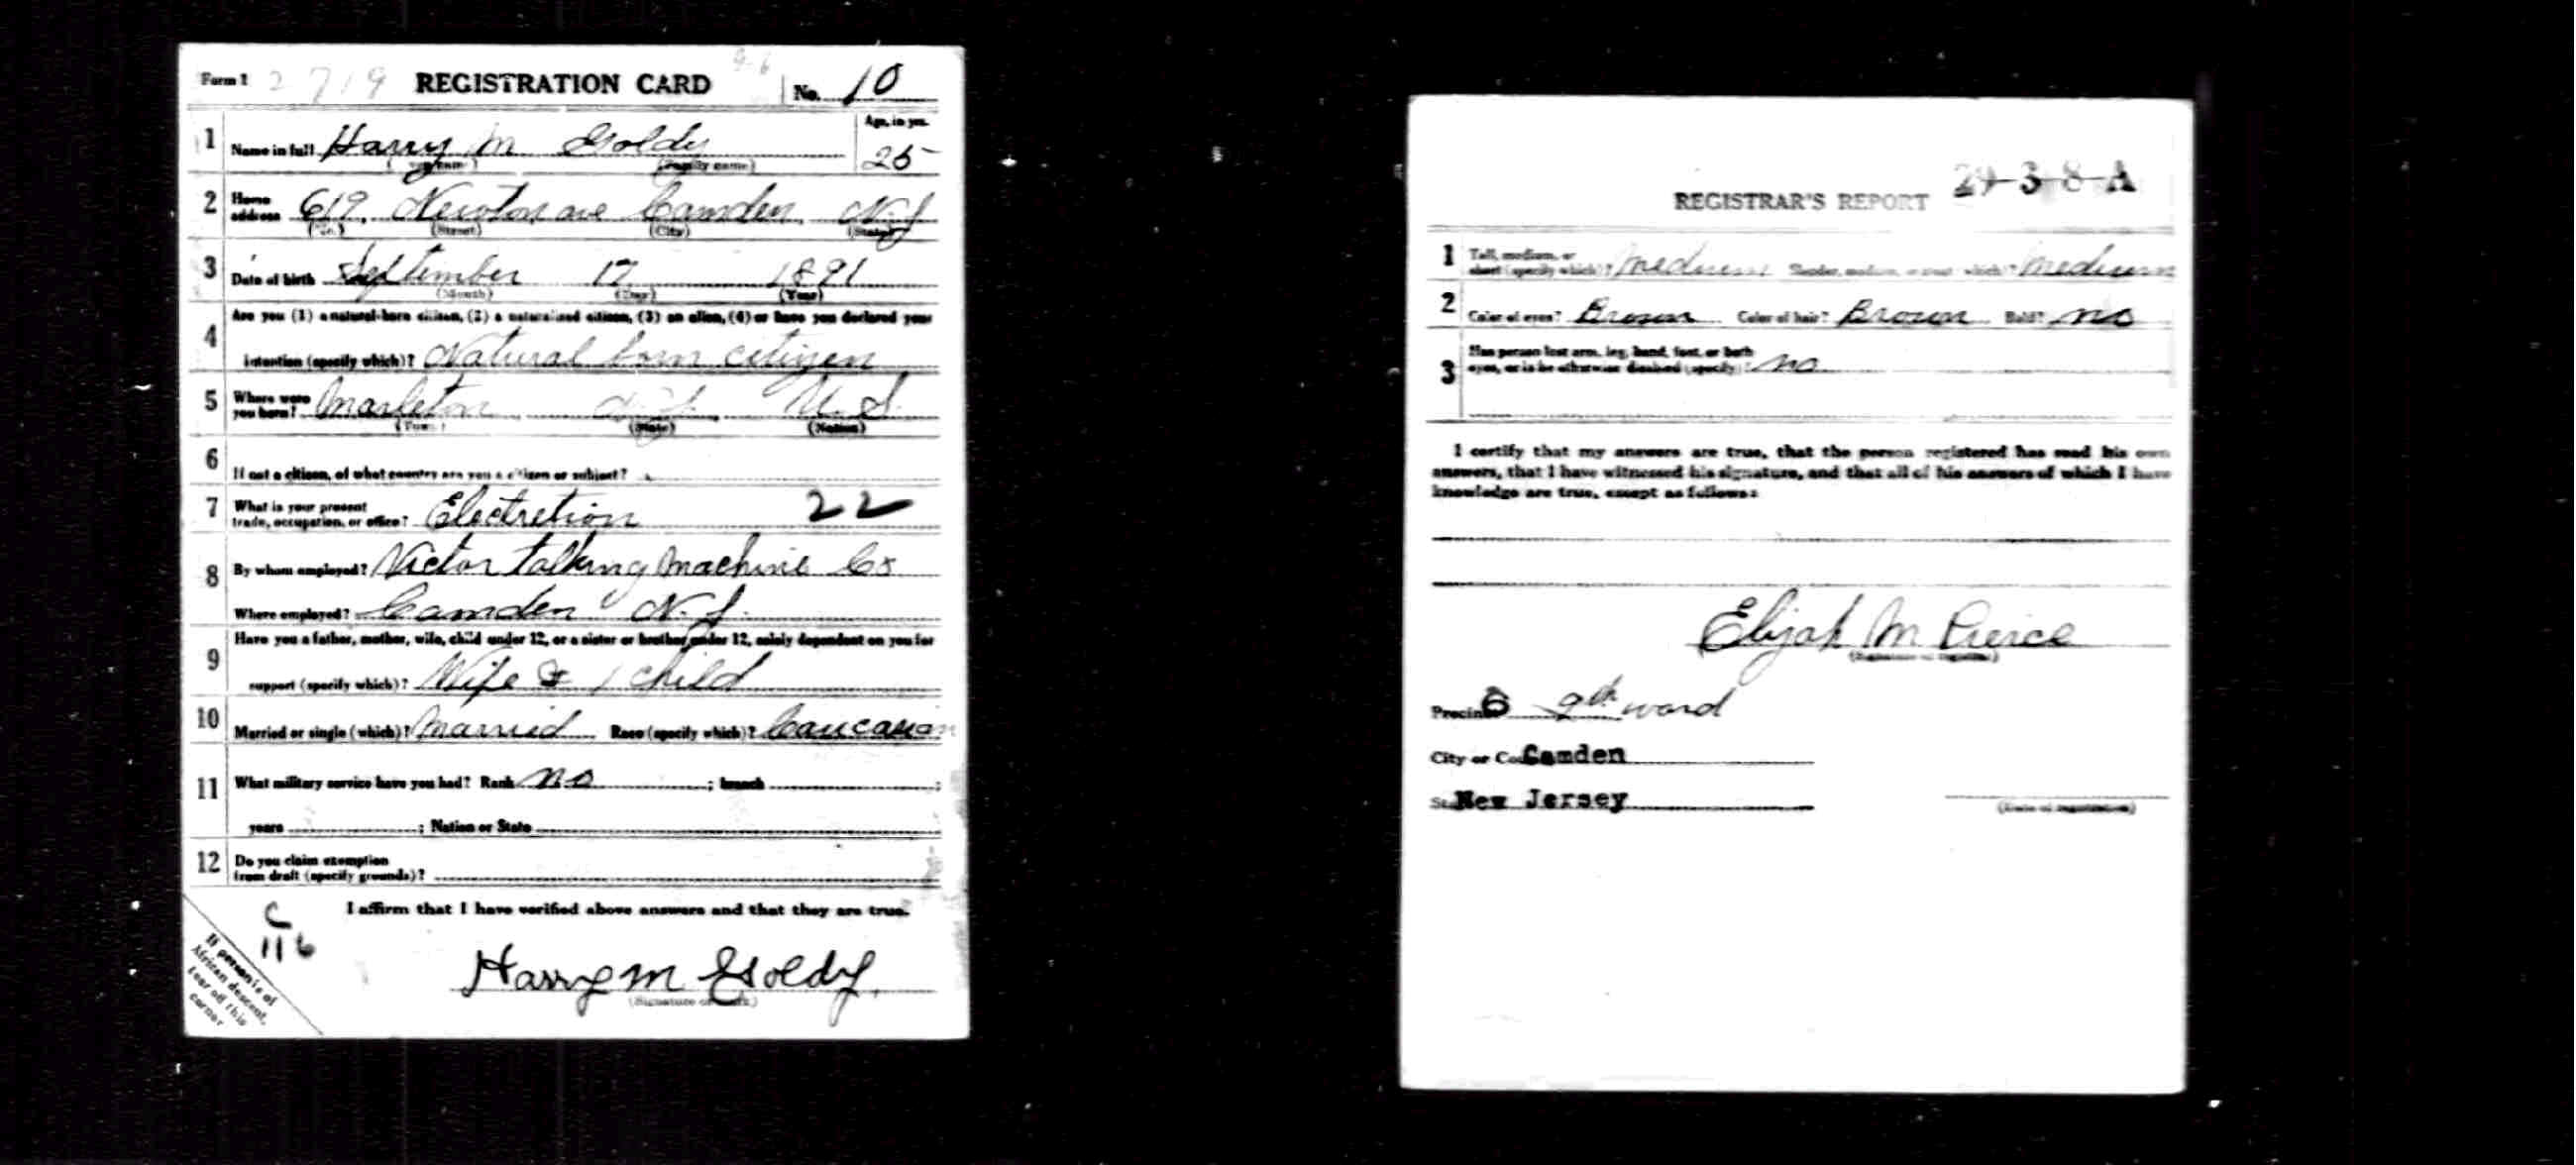 Form 1 2719 REGISTRATION CARD No. 10
1 Name in full Harry M Goldy Age, in yrs. 25
(Given name) (Family name)
2 Home address 619 Newton ave Camden N.J
(No.) (Street) (City) (State)
3 Date of birth September 17 1891
(Month) (Day) (Year)
4 Are you (1) a natural-born citizen, (2) a naturalized citizen, (3) an alien, (4) or have you declared your
intention (specify which)? Natural born citizen
5 Where were you born? Marleton N.J. U.S.
(Town) (State) (Nation)
6 If not a citizen, of what country are you a citizen or subject?
7 What is your present trade, occupation, or office? Electretion 22
8 By whom employed? Victor talking machine Co
Where employed? Camden N.J.
9 Have you a father, mother, wife, child under 12, or a sister or brother under 12, solely dependent on you for
support (specify which)? Wife & 1 child
10 Married or single (which)? Married Race (specify which)? Caucasian
11 What military service have you had? Rank no ; branch ;
years ; Nation or State
12 Do you claim exemption
from draft (specify grounds)?
I affirm that I have verified above answers and that they are true.
C
116
Harry M Goldy.
(Signature or mark)
If person is of
African descent,
tear off this
corner
REGISTRAR'S REPORT 29-3-8-A
1 Tall, medium, or
short (specify which)? Medium Slender, medium, or stout (which)? Medium
2 Color of eyes? Brown Color of hair? Brown Bald? no
3 Has person lost arm, leg, hand, foot, or both
eyes, or is he otherwise disabled (specify)? no
I certify that my answers are true, that the person registered has read his own
answers, that I have witnessed his signature, and that all of his answers of which I have
knowledge are true, except as follows:
Elijah M Pierce
(Signature of registrar)
Precinct 6 9th ward
City or Co Camden
St New Jersey
(Date of registration)